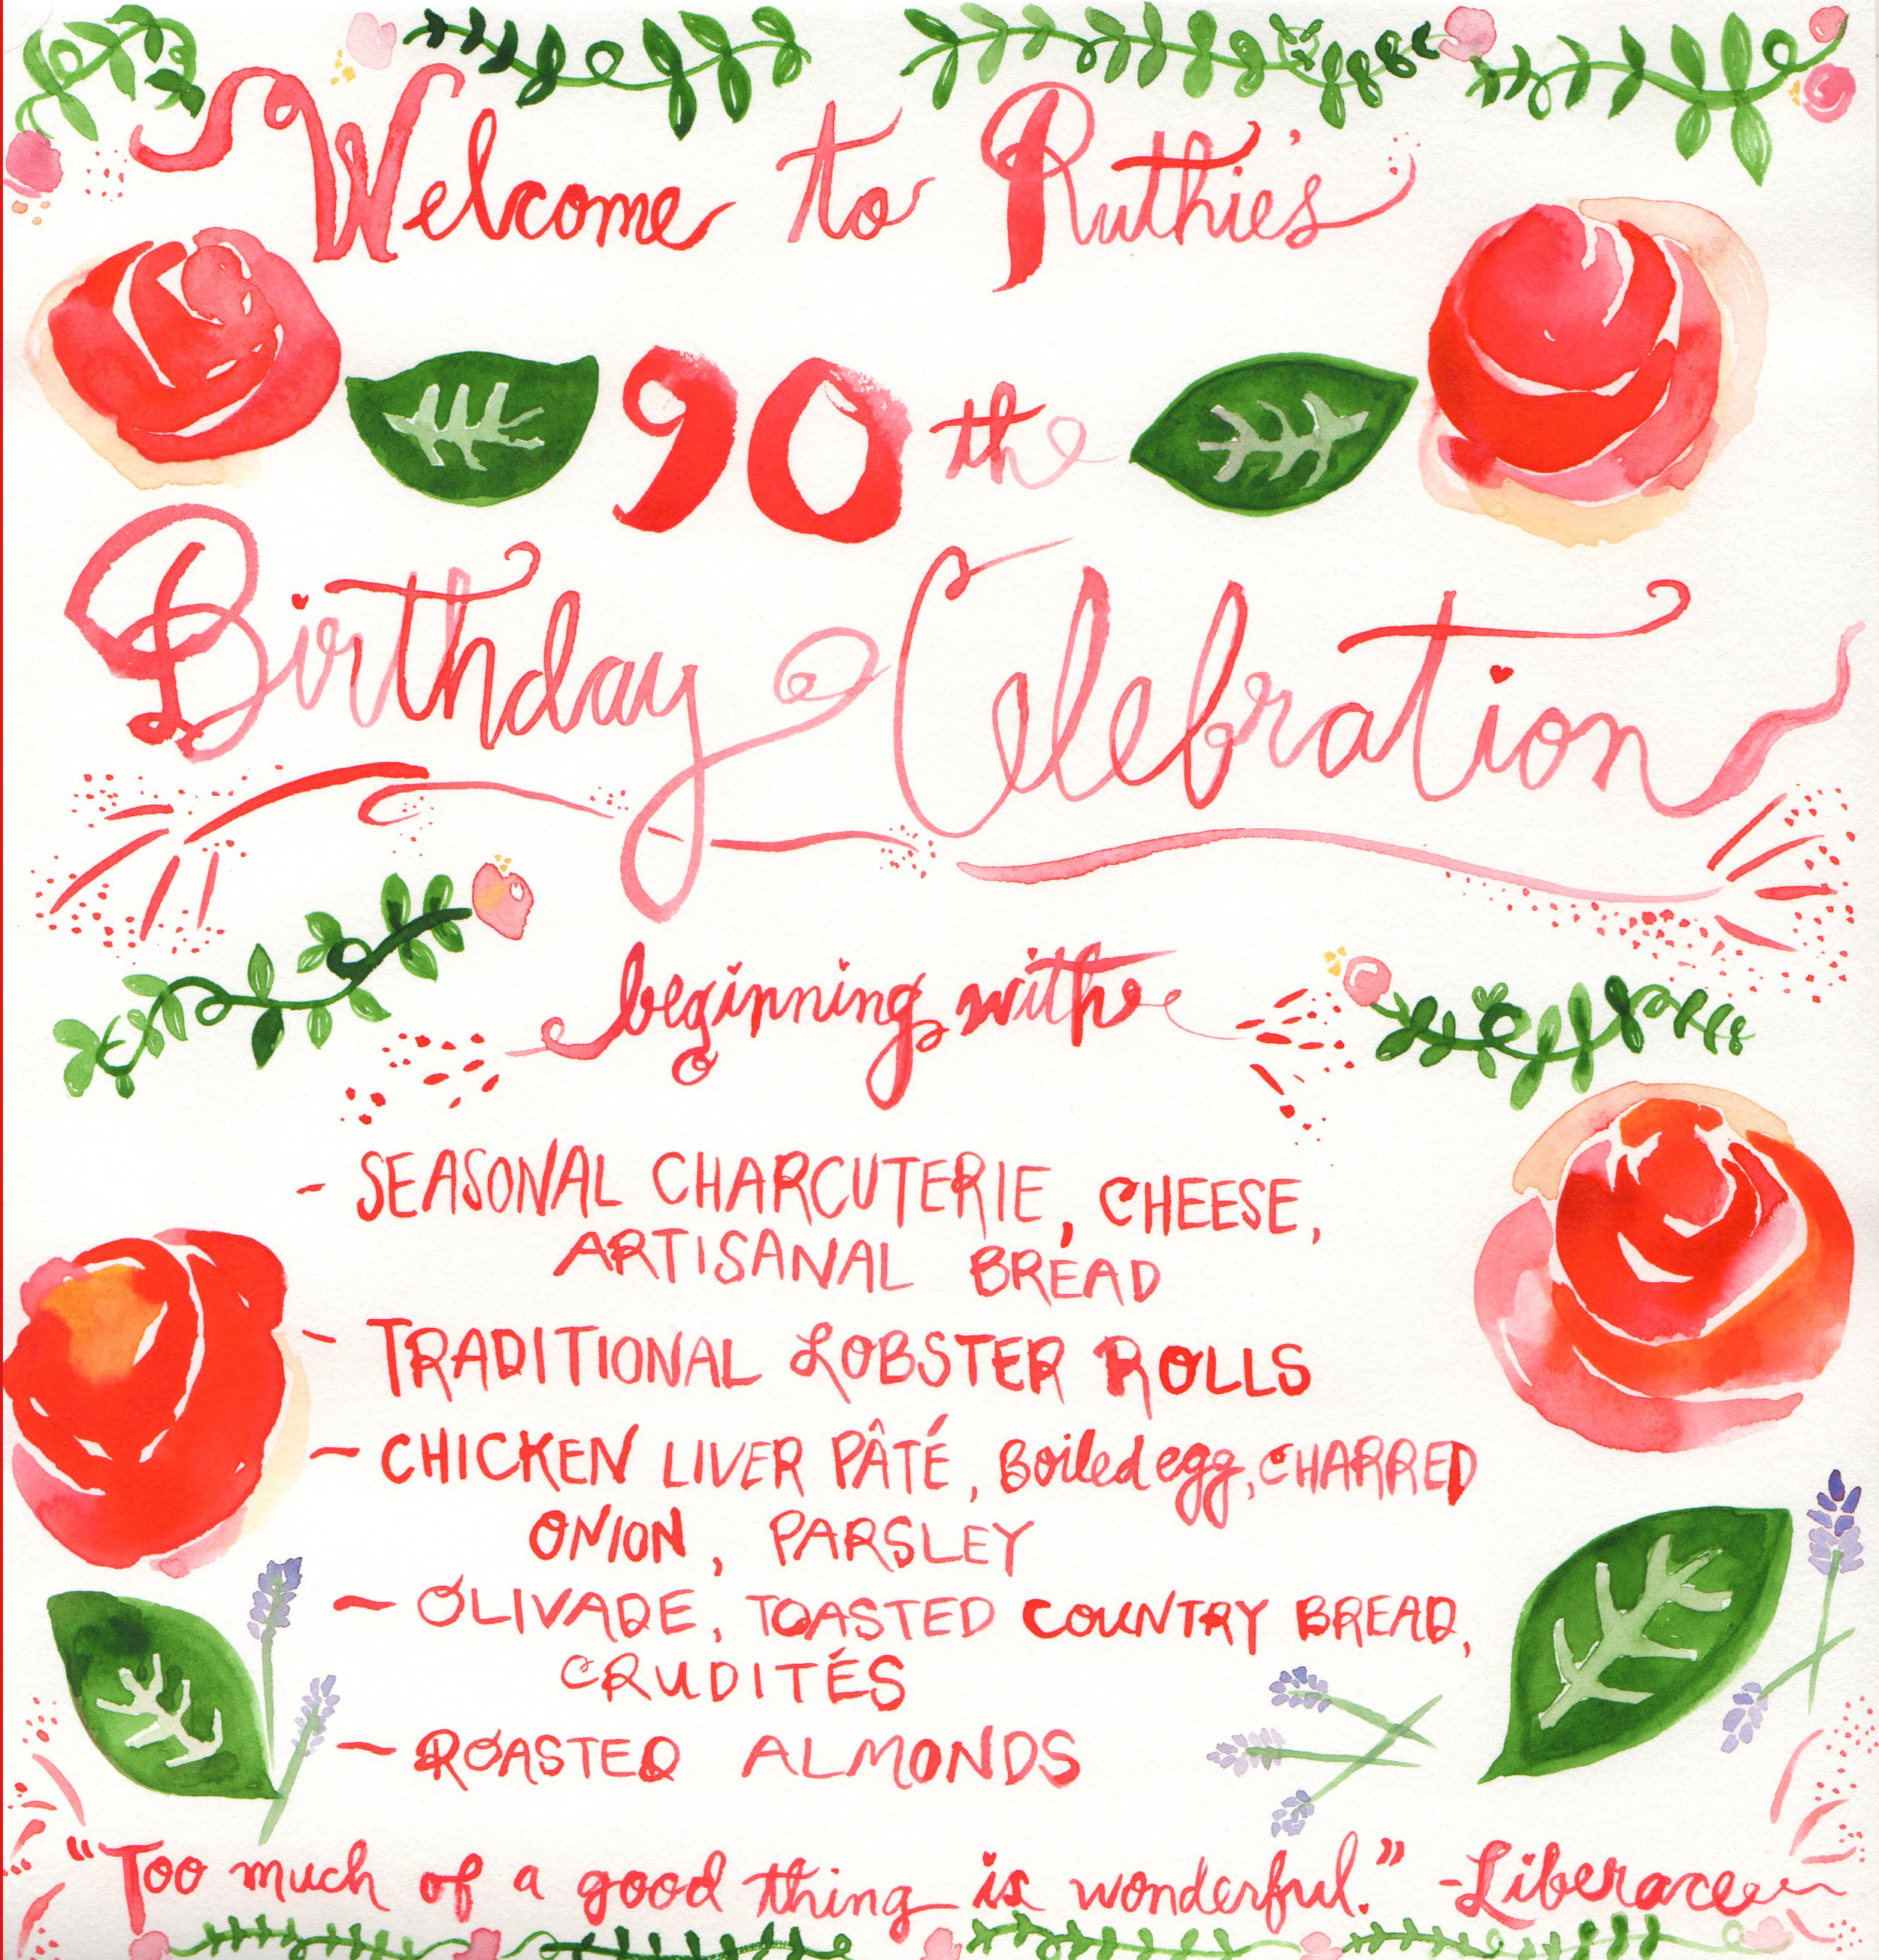 Welcome to Ruthie's
90th
Birthday Celebration
beginning with
- SEASONAL CHARCUTERIE, CHEESE,
ARTISANAL BREAD
- TRADITIONAL LOBSTER ROLLS
- CHICKEN LIVER PÂTÉ, Boiled egg, CHARRED
ONION, PARSLEY
- OLIVADE, TOASTED COUNTRY BREAD,
CRUDITÉS
- ROASTED ALMONDS
"Too much of a good thing is wonderful." -Liberace